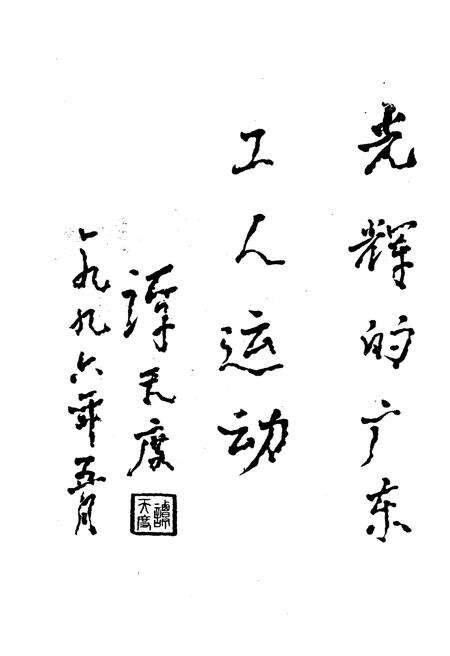 光辉的广东
工人运动
谭天度
一九九六年五月
譚天度